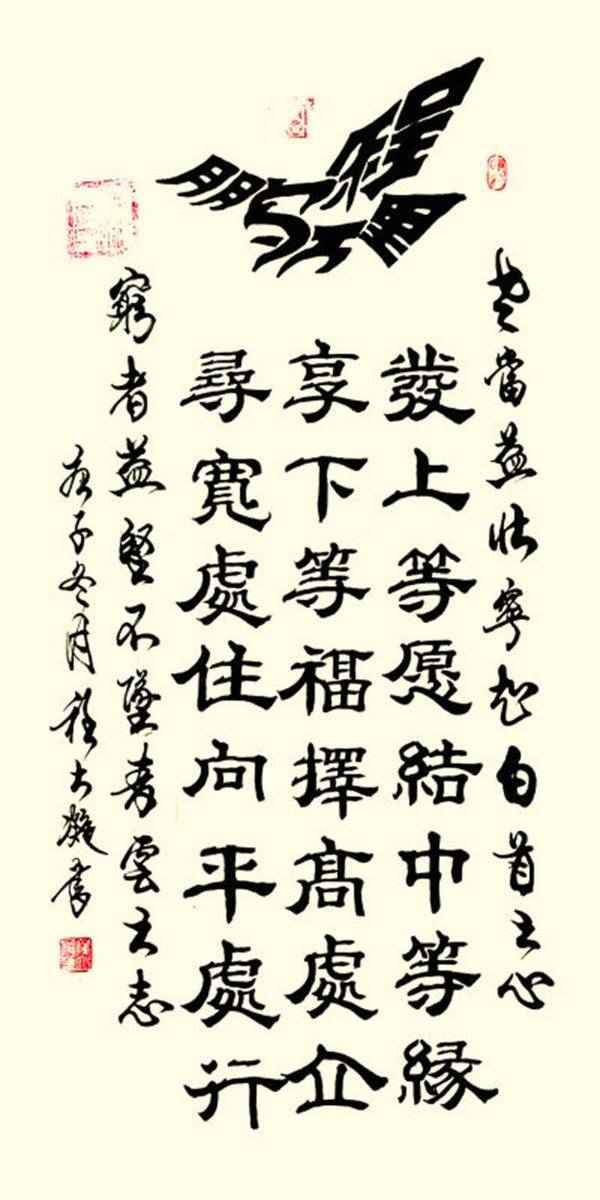 老當益壯寧知白首之心
發上等愿結中等緣
享下等福擇高處立
尋寬處住向平處行
窮者益堅不墜青雲之志
庚子冬月程大書